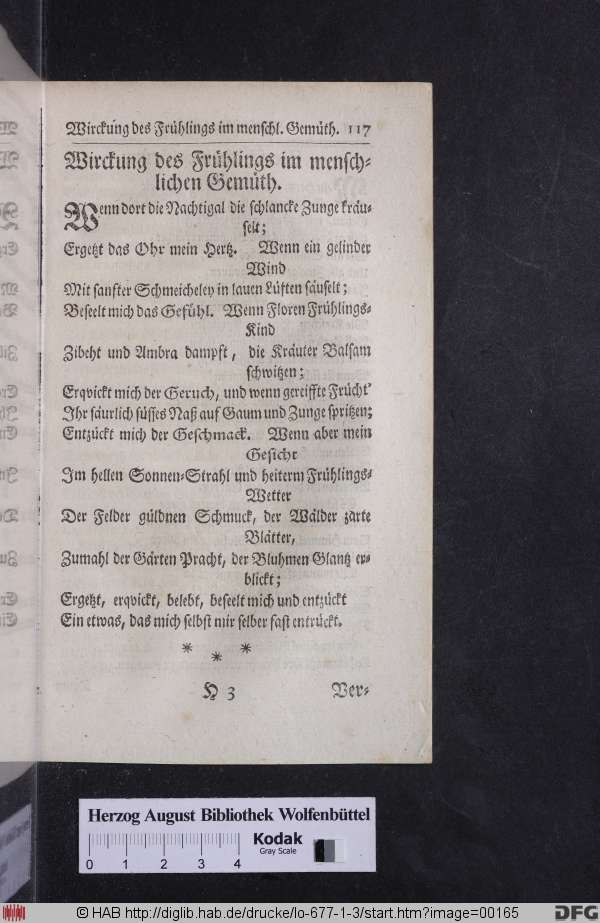 Wirckung des Frühlings im menschl. Gemüth. 117
Wirckung des Frühlings im mensch-
lichen Gemüth.
Wenn dort die Nachtigal die schlancke Zunge kräu-
selt;
Ergetzt das Ohr mein Hertz. Wenn ein gelinder
Wind
Mit sanfter Schmeicheley in lauen Lüften säuselt;
Beseelt mich das Gefühl. Wenn Floren Frühlings-
Kind
Zibeht und Ambra dampft, die Kräuter Balsam
schwitzen;
Erqvickt mich der Geruch, und wenn gereiffte Frücht'
Ihr säurlich süsses Naß auf Gaum und Zunge spritzen;
Entzückt mich der Geschmack. Wenn aber mein
Gesicht
Im hellen Sonnen-Strahl und heiterm Frühlings-
Wetter
Der Felder güldnen Schmuck, der Wälder zarte
Blätter,
Zumahl der Gärten Pracht, der Bluhmen Glantz er-
blickt;
Ergetzt, erqvickt, belebt, beseelt mich und entzückt
Ein etwas, das mich selbst mir selber fast entrückt.
* * *
H 3 Ver-
Herzog August Bibliothek Wolfenbüttel
Kodak
Gray Scale
0 1 2 3 4
© HAB http://diglib.hab.de/drucke/lo-677-1-3/start.htm?image=00165
DFG